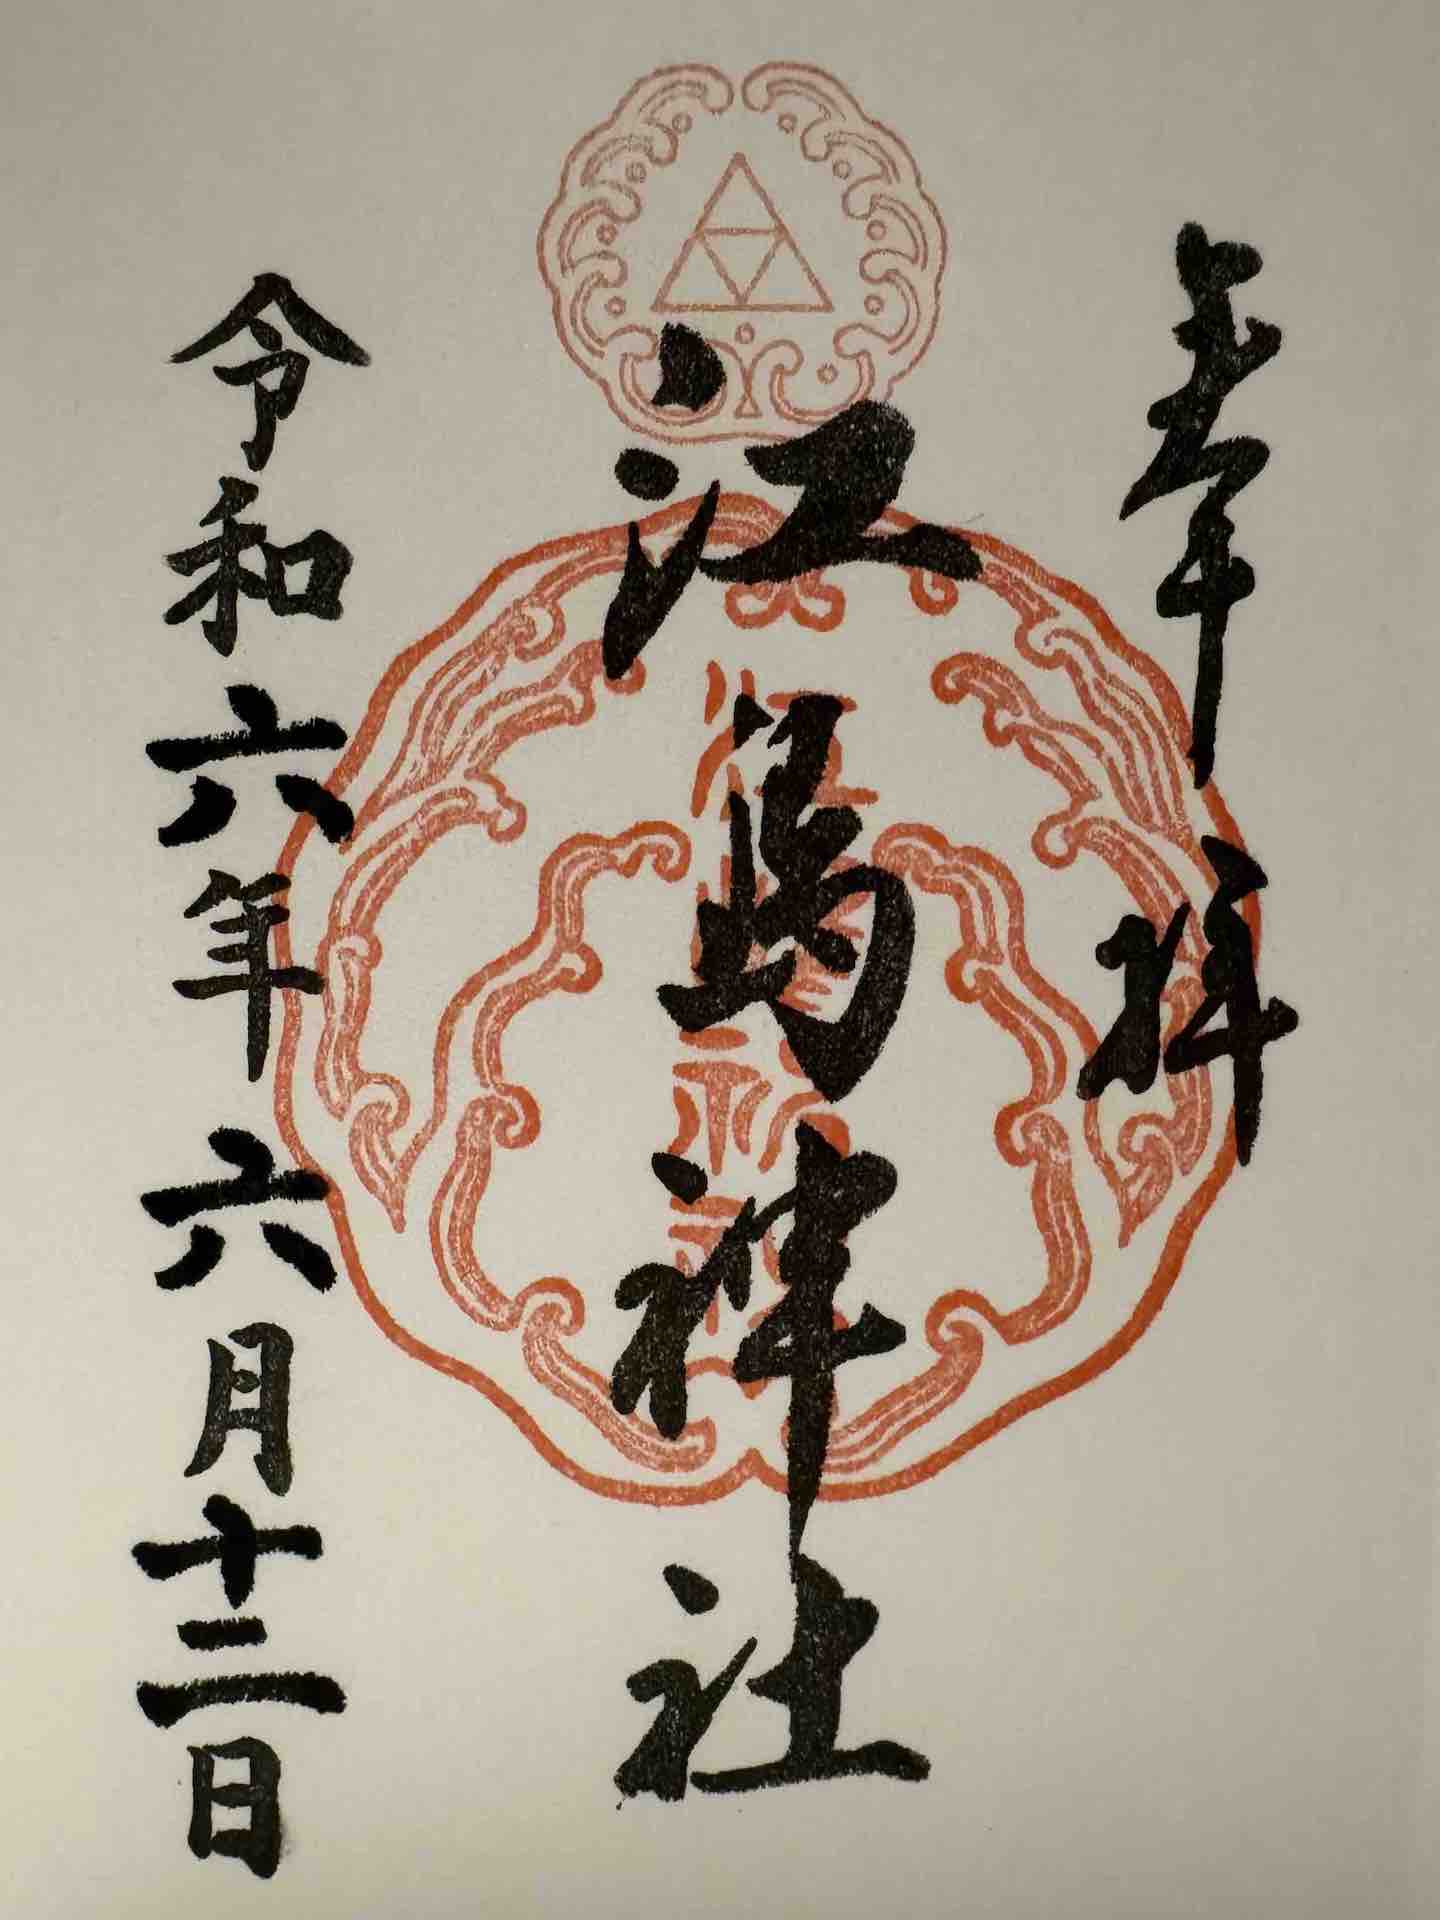 奉拝
江島神社
令和六年六月十二日